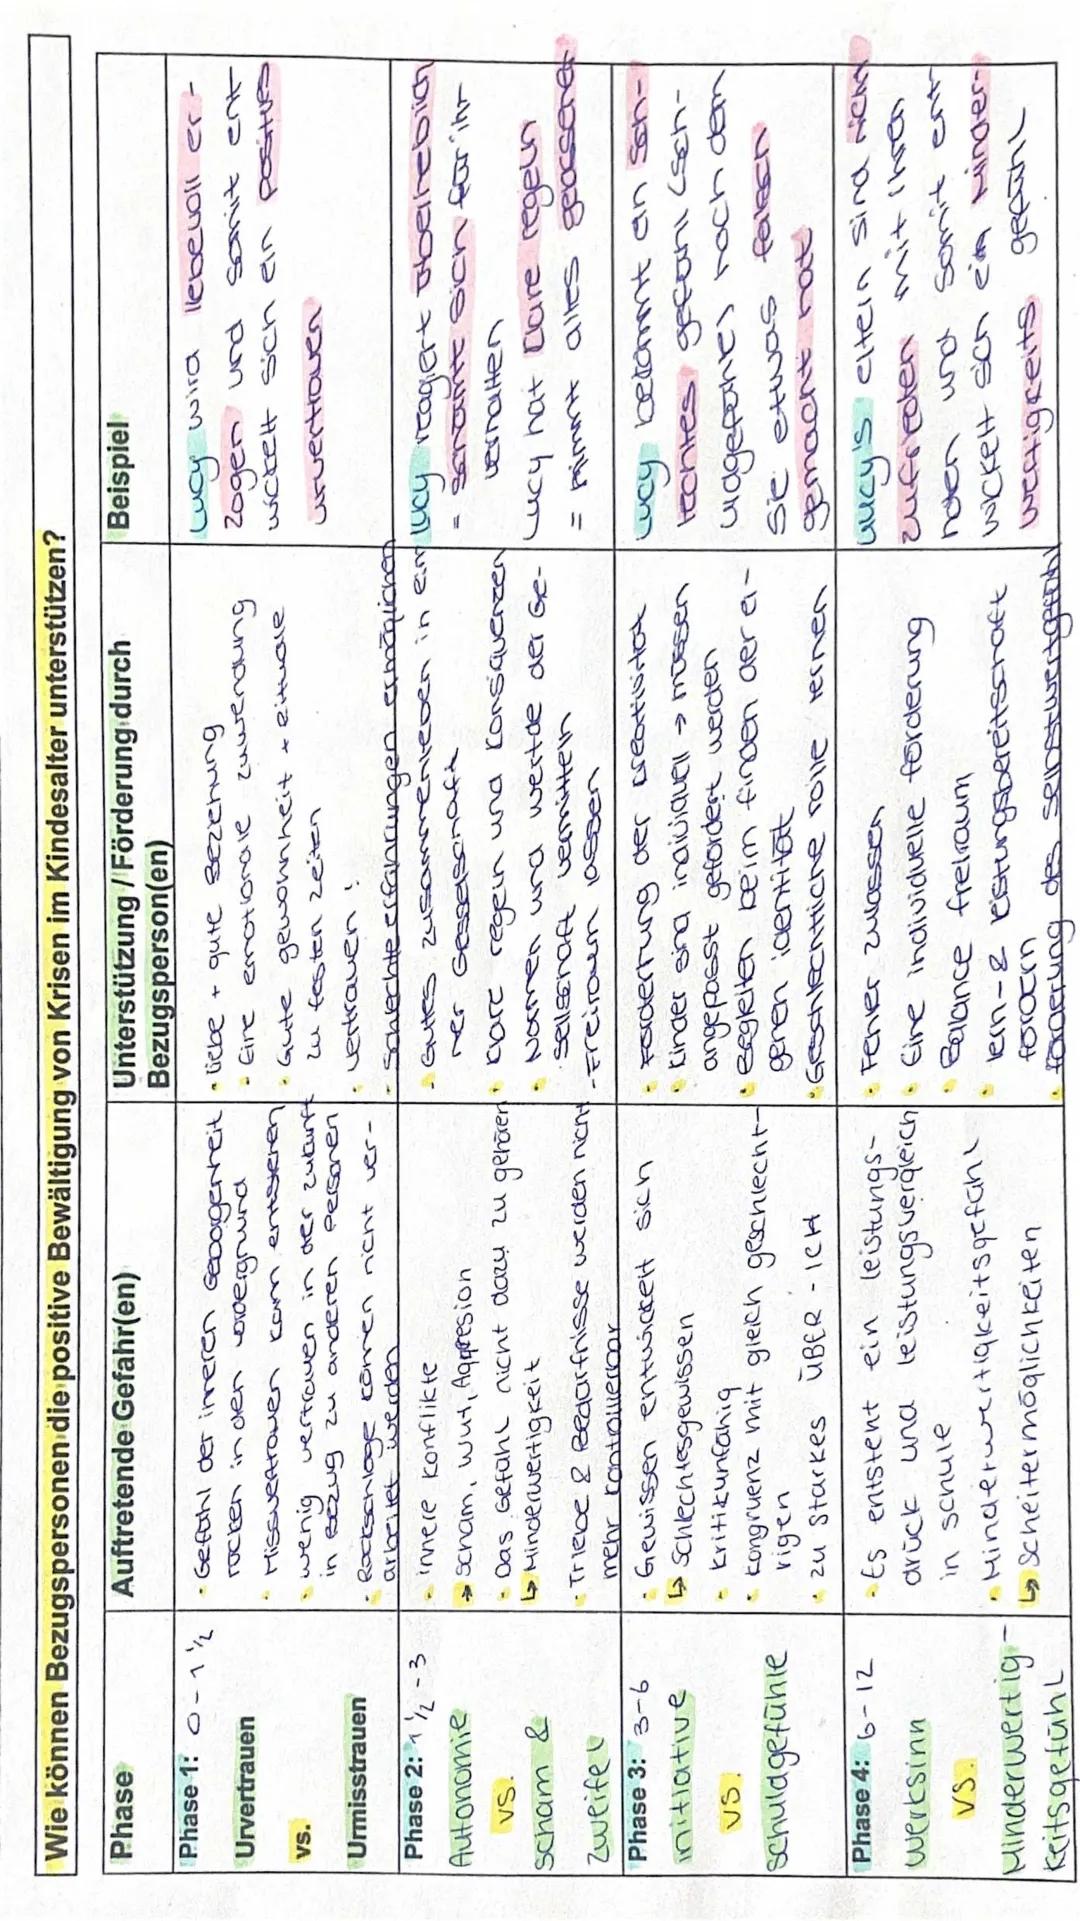 Wie können Bezugspersonen die positive Bewältigung von Krisen im Kindesalter unterstützen?
Phase
Auftretende Gefahr(en)
Unterstützung / Förderung durch
Bezugsperson(en)
Beispiel
Phase 1: 0 - 1 ½
Urvertrauen
vs.
Urmisstrauen
· Gefühl der inneren Geborgenheit
rücken in den Vordergrund
· Missvertrauen kann entstehen
· wenig vertrauen in der zukunft
in Bezug zu anderen Personen
· Rückschläge können nicht ver-
arbeitet werden
· Liebe + gute Beziehung
· Eine emotionale zuwendung
· Gute gewohnheit + Rituale
zu festen zeiten
· vertrauen!
· Schlechte erfahrungen ermöglichen
Lucy wird liebevoll er-
zogen und somit ent-
wickelt sich ein positives
urvertrauen
Phase 2: 1 ½ - 3
Autonomie
vs.
Scham &
Zweifel
· innere Konflikte
→ Scham, Wut, Aggresion
· Das Gefühl nicht dazu zu gehören
↳ Minderwertigkeit
· Triebe & Bedürfnisse werden nicht
mehr kontrollierbar
- Gutes zusammenleben in ein
ner Gesselschaft
· klare regeln und konsiquenzen
· Normen und werte der Ge-
sellschaft vermitteln
- Freiraum lassen
Lucy reagiert
= schämte sich für ihr
verhalten
Lucy hat klare regeln
= nimmt alles gelassener
Phase 3: 3-6
initiative
vs.
schuldgefühle
· Gewissen entwickelt sich
↳ Schlechtesgewissen
· kritikunfähig
· kongruenz mit gleich geschlecht-
rigen
· zu starkes ÜBER - ICH
· Förderung der kreativität
· Kinder sind individuell → müssen
angepasst gefördert werden
· Begleiten beim finden der ei-
genen identität
· Geschlechtliche rolle lernen
Lucy bekommt ein Sch-
lechtes gefühl (sch-
uldgefühle) nach dem
Sie etwas falsch
gemacht hat
Phase 4: 6-12
Werksinn
vs.
Minderwertig-
keitsgefühl
· Es entsteht ein leistungs-
drück und leistungsvergleich
in schule
· Minderwertigkeitsgefühl
↳ Scheitermöglichkeiten
· Fehler zulassen
· Eine individuelle förderung
· Balance freiraum
· lern- & leistungsbereitschaft
fördern
· förderung des selbstwertgefühl
Lucy's eltern sind nicht
zufrieden mit ihren
noten und somit ent-
wickelt sich ein minder-
wertigkeits gefühl